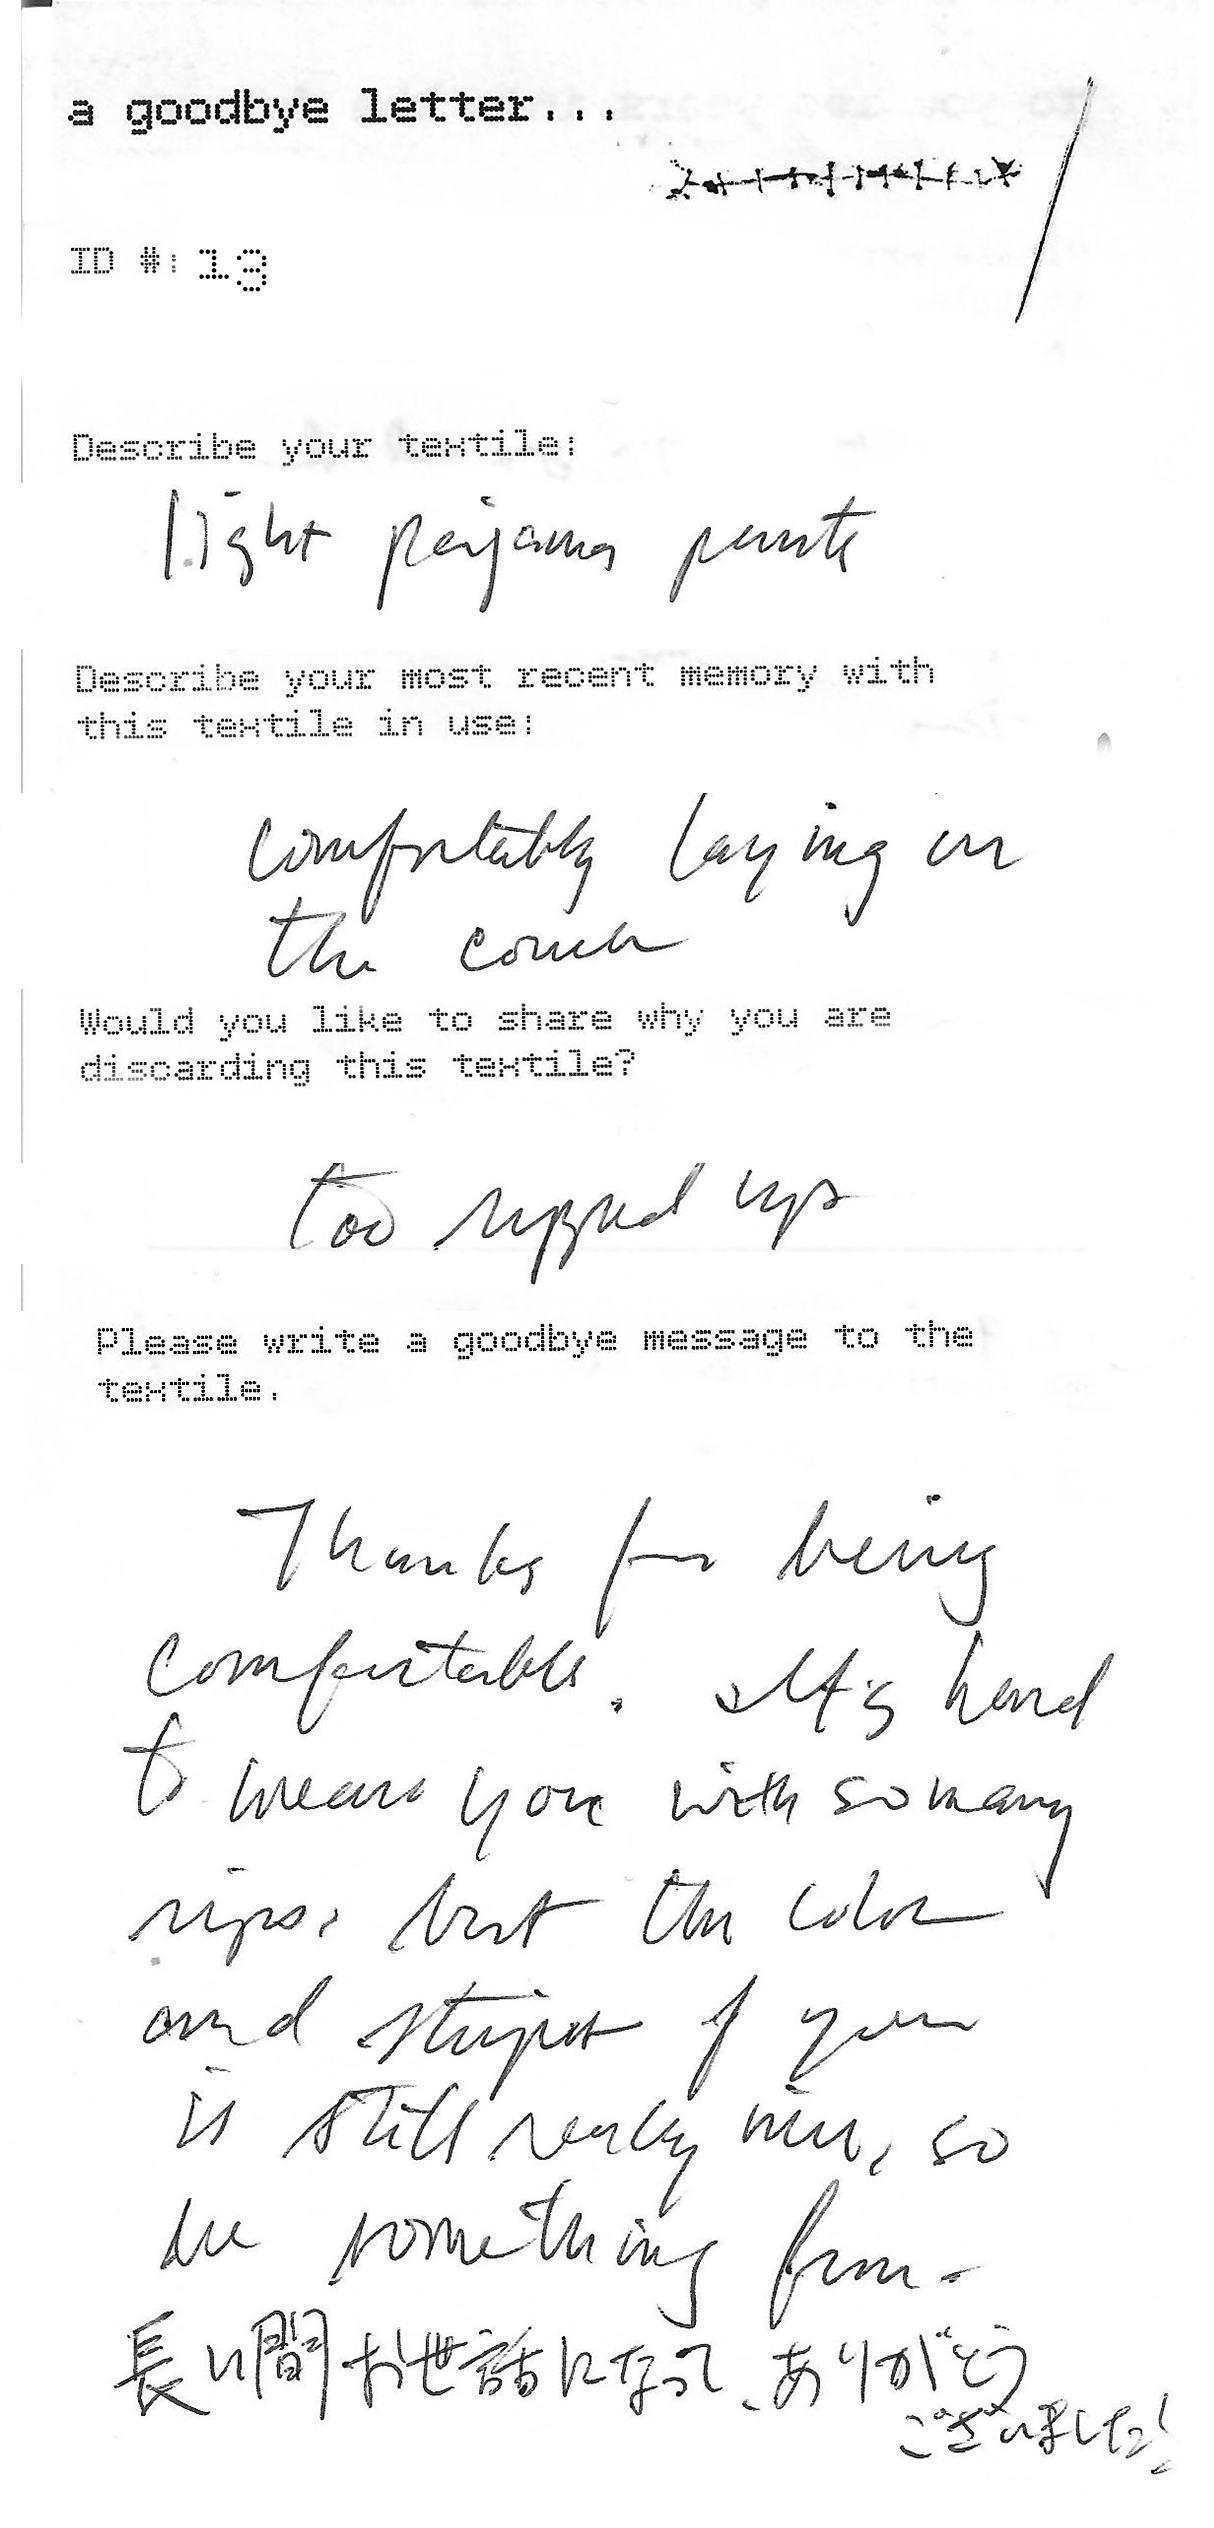 a goodbye letter...
ID #: 13
Describe your textile:
light pajama pants
Describe your most recent memory with
this textile in use:
comfortably laying on
the couch
Would you like to share why you are
discarding this textile?
too ripped up
Please write a goodbye message to the
textile.
Thanks for being
comfortable. It's hard
to wear you with so many
rips, but the color
and stripes of you
is still really nice, so
be something fun.
長い間お世話になって、ありがとう
ございました!